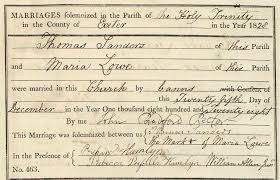 MARRIAGES solemnized in the Parish of the Holy Trinity
in the County of Exeter in the Year 1828
Thomas Sanders of this Parish
and
Maria Lowe of this Parish
were married in this Church by Banns with Consent of
this Twenty fifth Day of
December in the Year One thousand eight hundred and twenty eight
By me John Bradford Rector
This Marriage was solemnized between us
Thomas Sanders
The Mark of Maria Lowe
In the Presence of Hamlyn
Hamlyn William
No. 463.